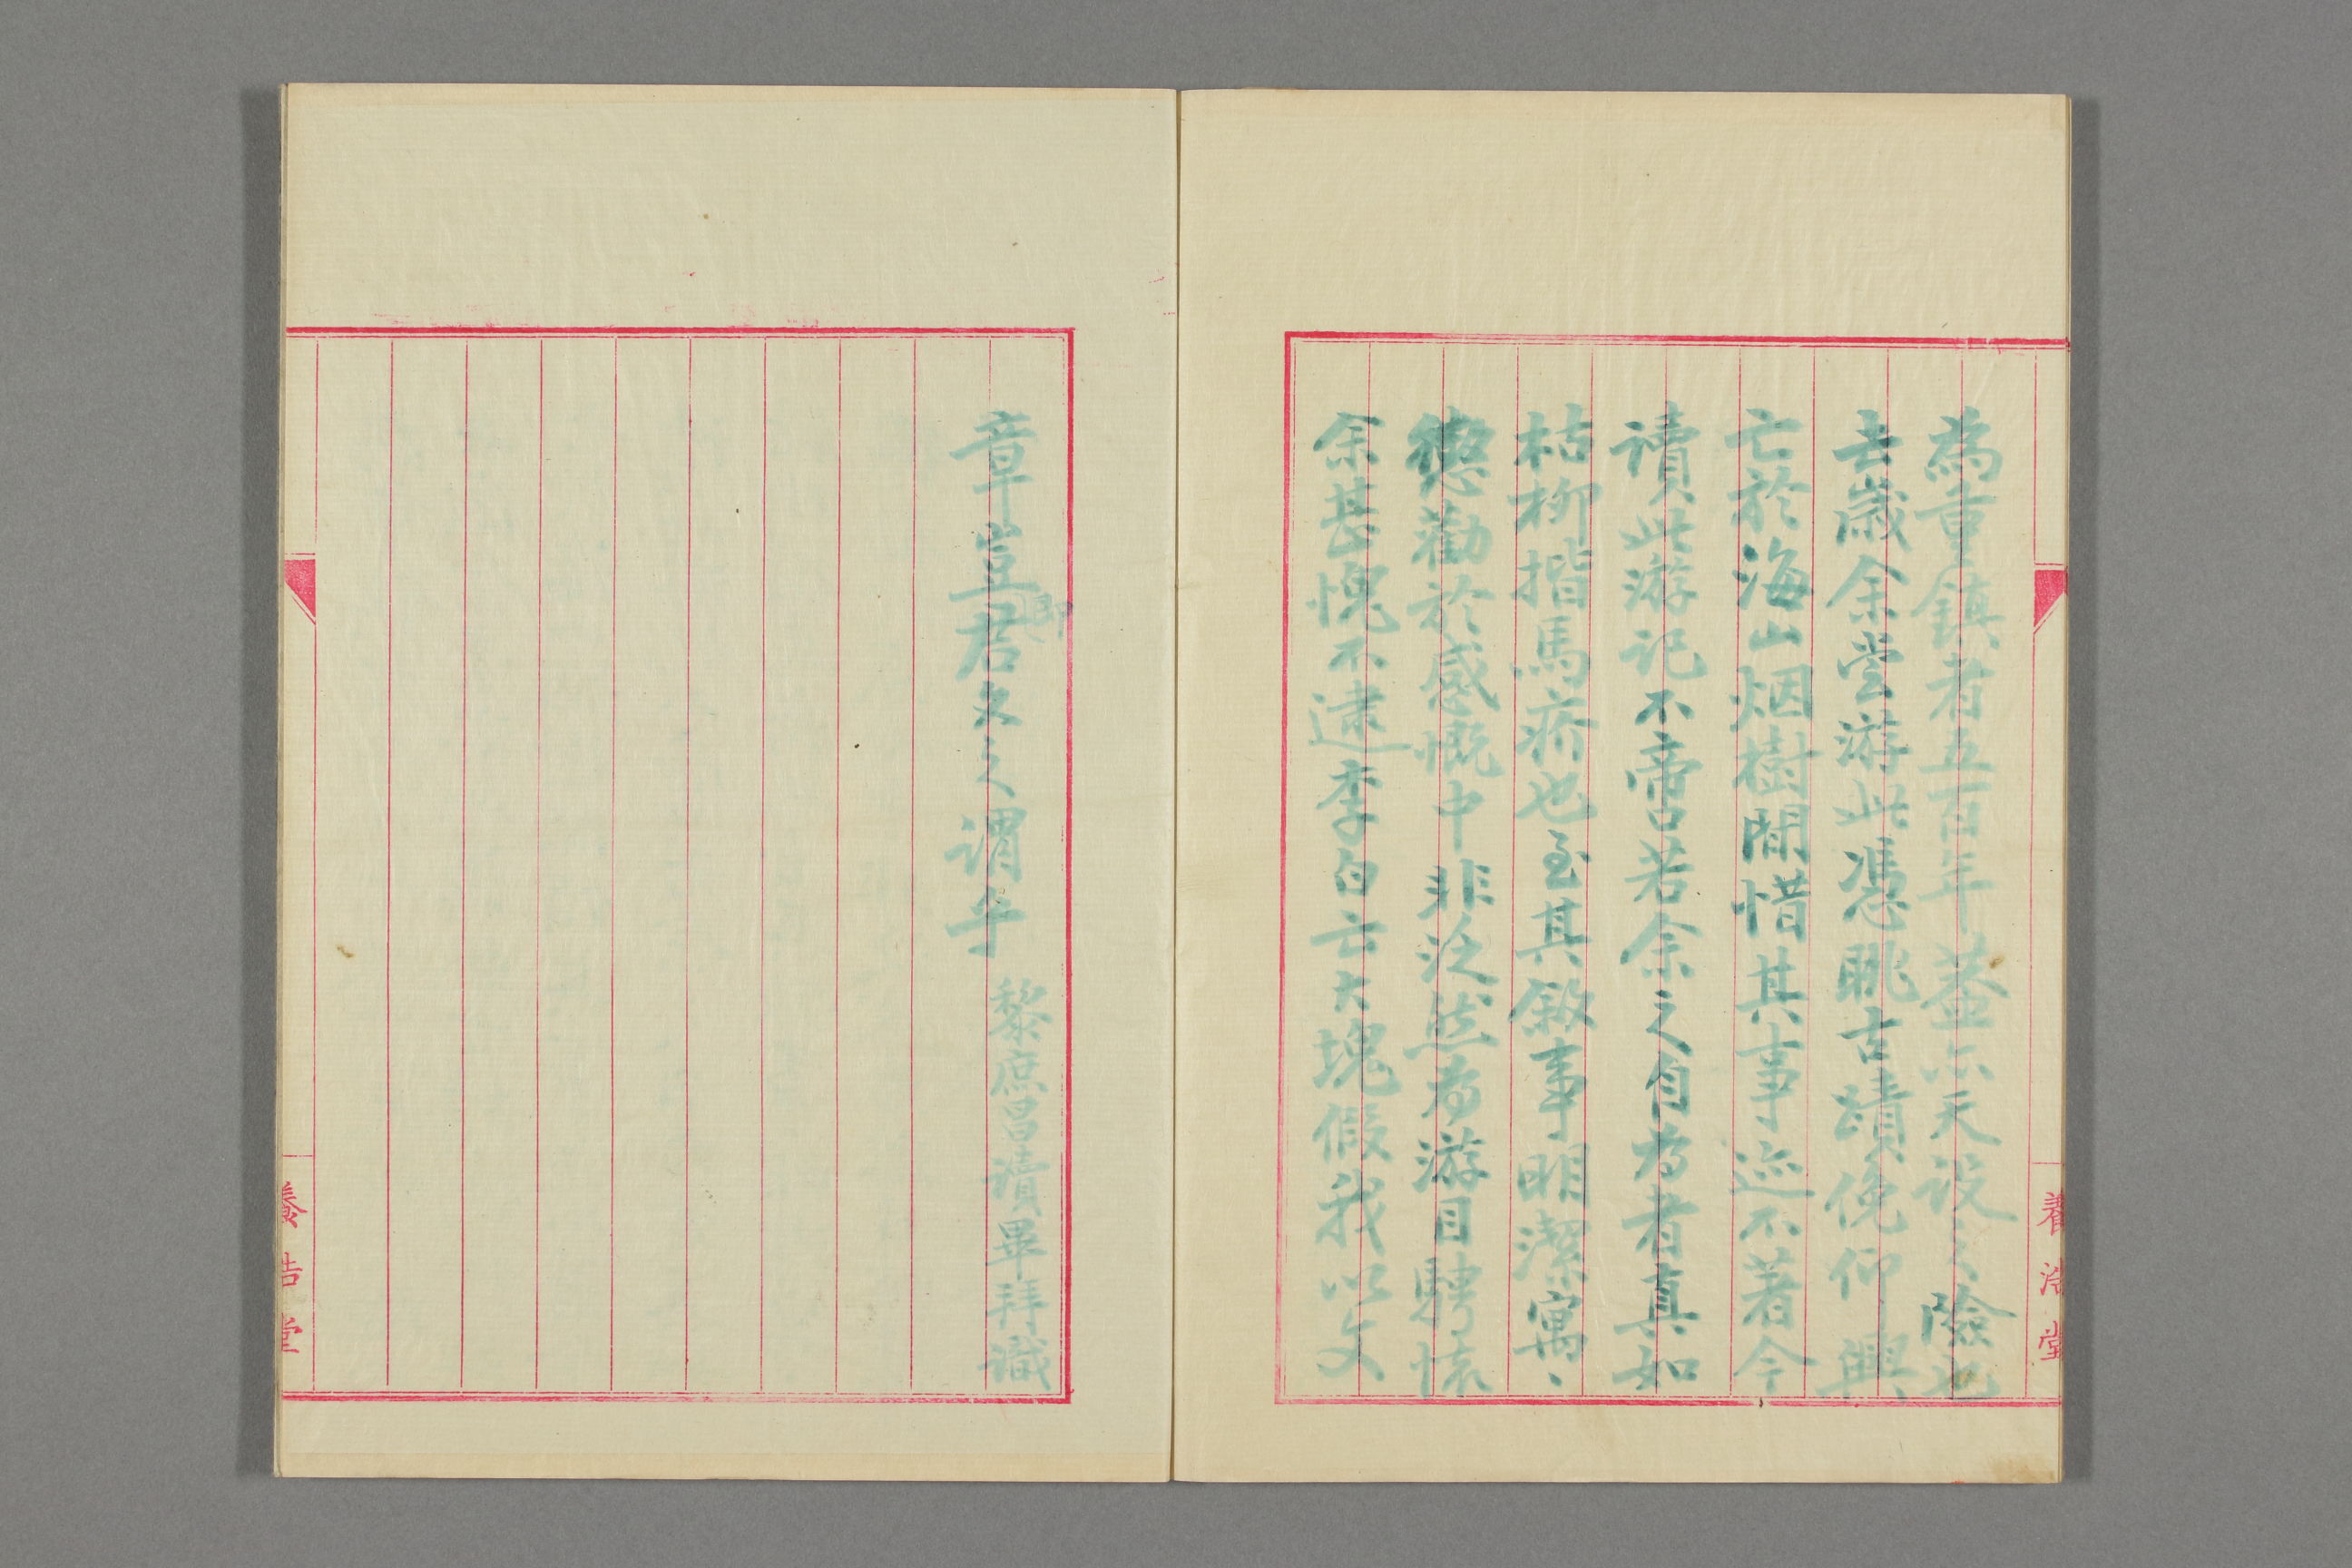 為重鎮者五百年蓋亦天設之險也
去歲余嘗游此憑眺古蹟俛仰興
亡於海山烟樹間惜其事迹不著今
讀此游記不啻若余之自為者真如
枯柳揩馬疥也至其敘事明潔寓、
懲勸於感慨中非泛然為游目騁懷
余甚愧不逮李白云大塊假我以文
章豈即君文之謂乎
黎庶昌讀畢拜識
養浩堂
養浩堂